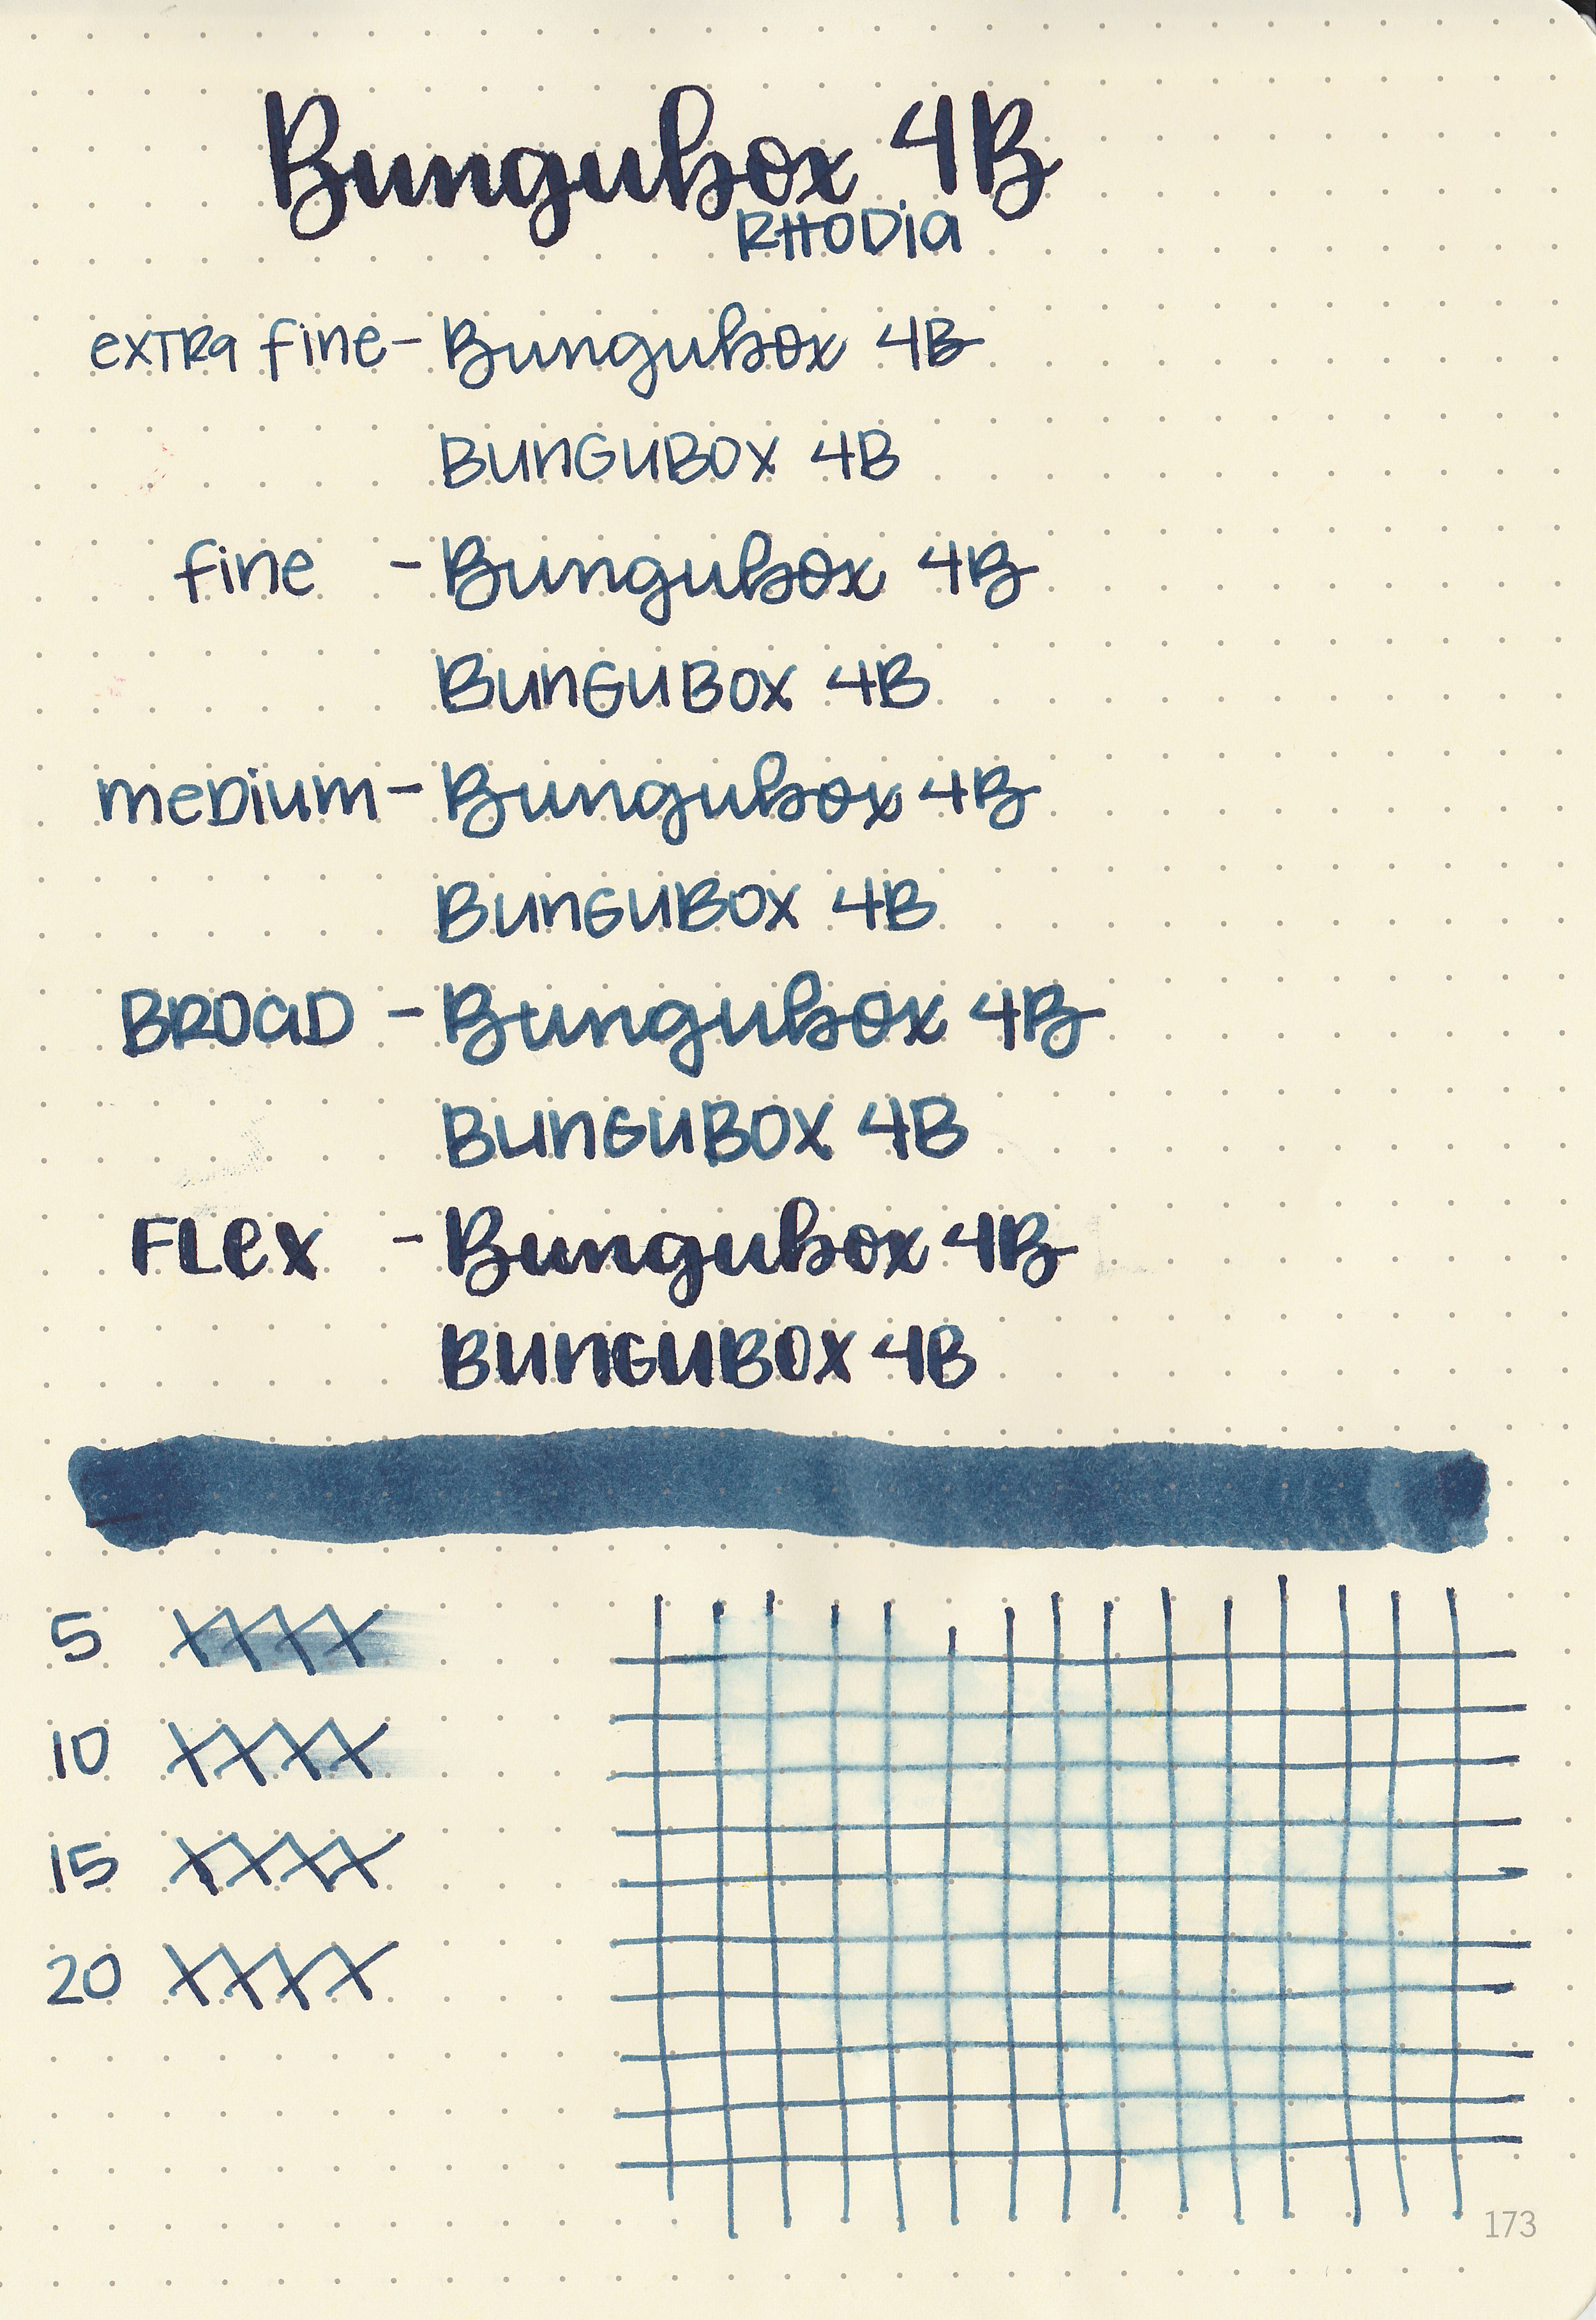 Bungubox 4B
RHODia
exTRa fine - Bungubox 4B
BUnGUBOX 4B
fine - Bungubox 4B
BUnGUBOX 4B
meDium - Bungubox 4B
BUnGUBOX 4B
BROaD - Bungubox 4B
BUnGUBOX 4B
FLex - Bungubox 4B
BUnGUBOX 4B
5 XXXX
10 XXXX
15 XXXX
20 XXXX
173